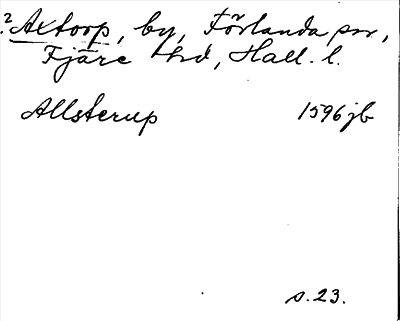 ? Axtorp, by, Förlanda sn,
Fjäre hd, Hall. l.
Allsterup 1596 jb
s. 23.